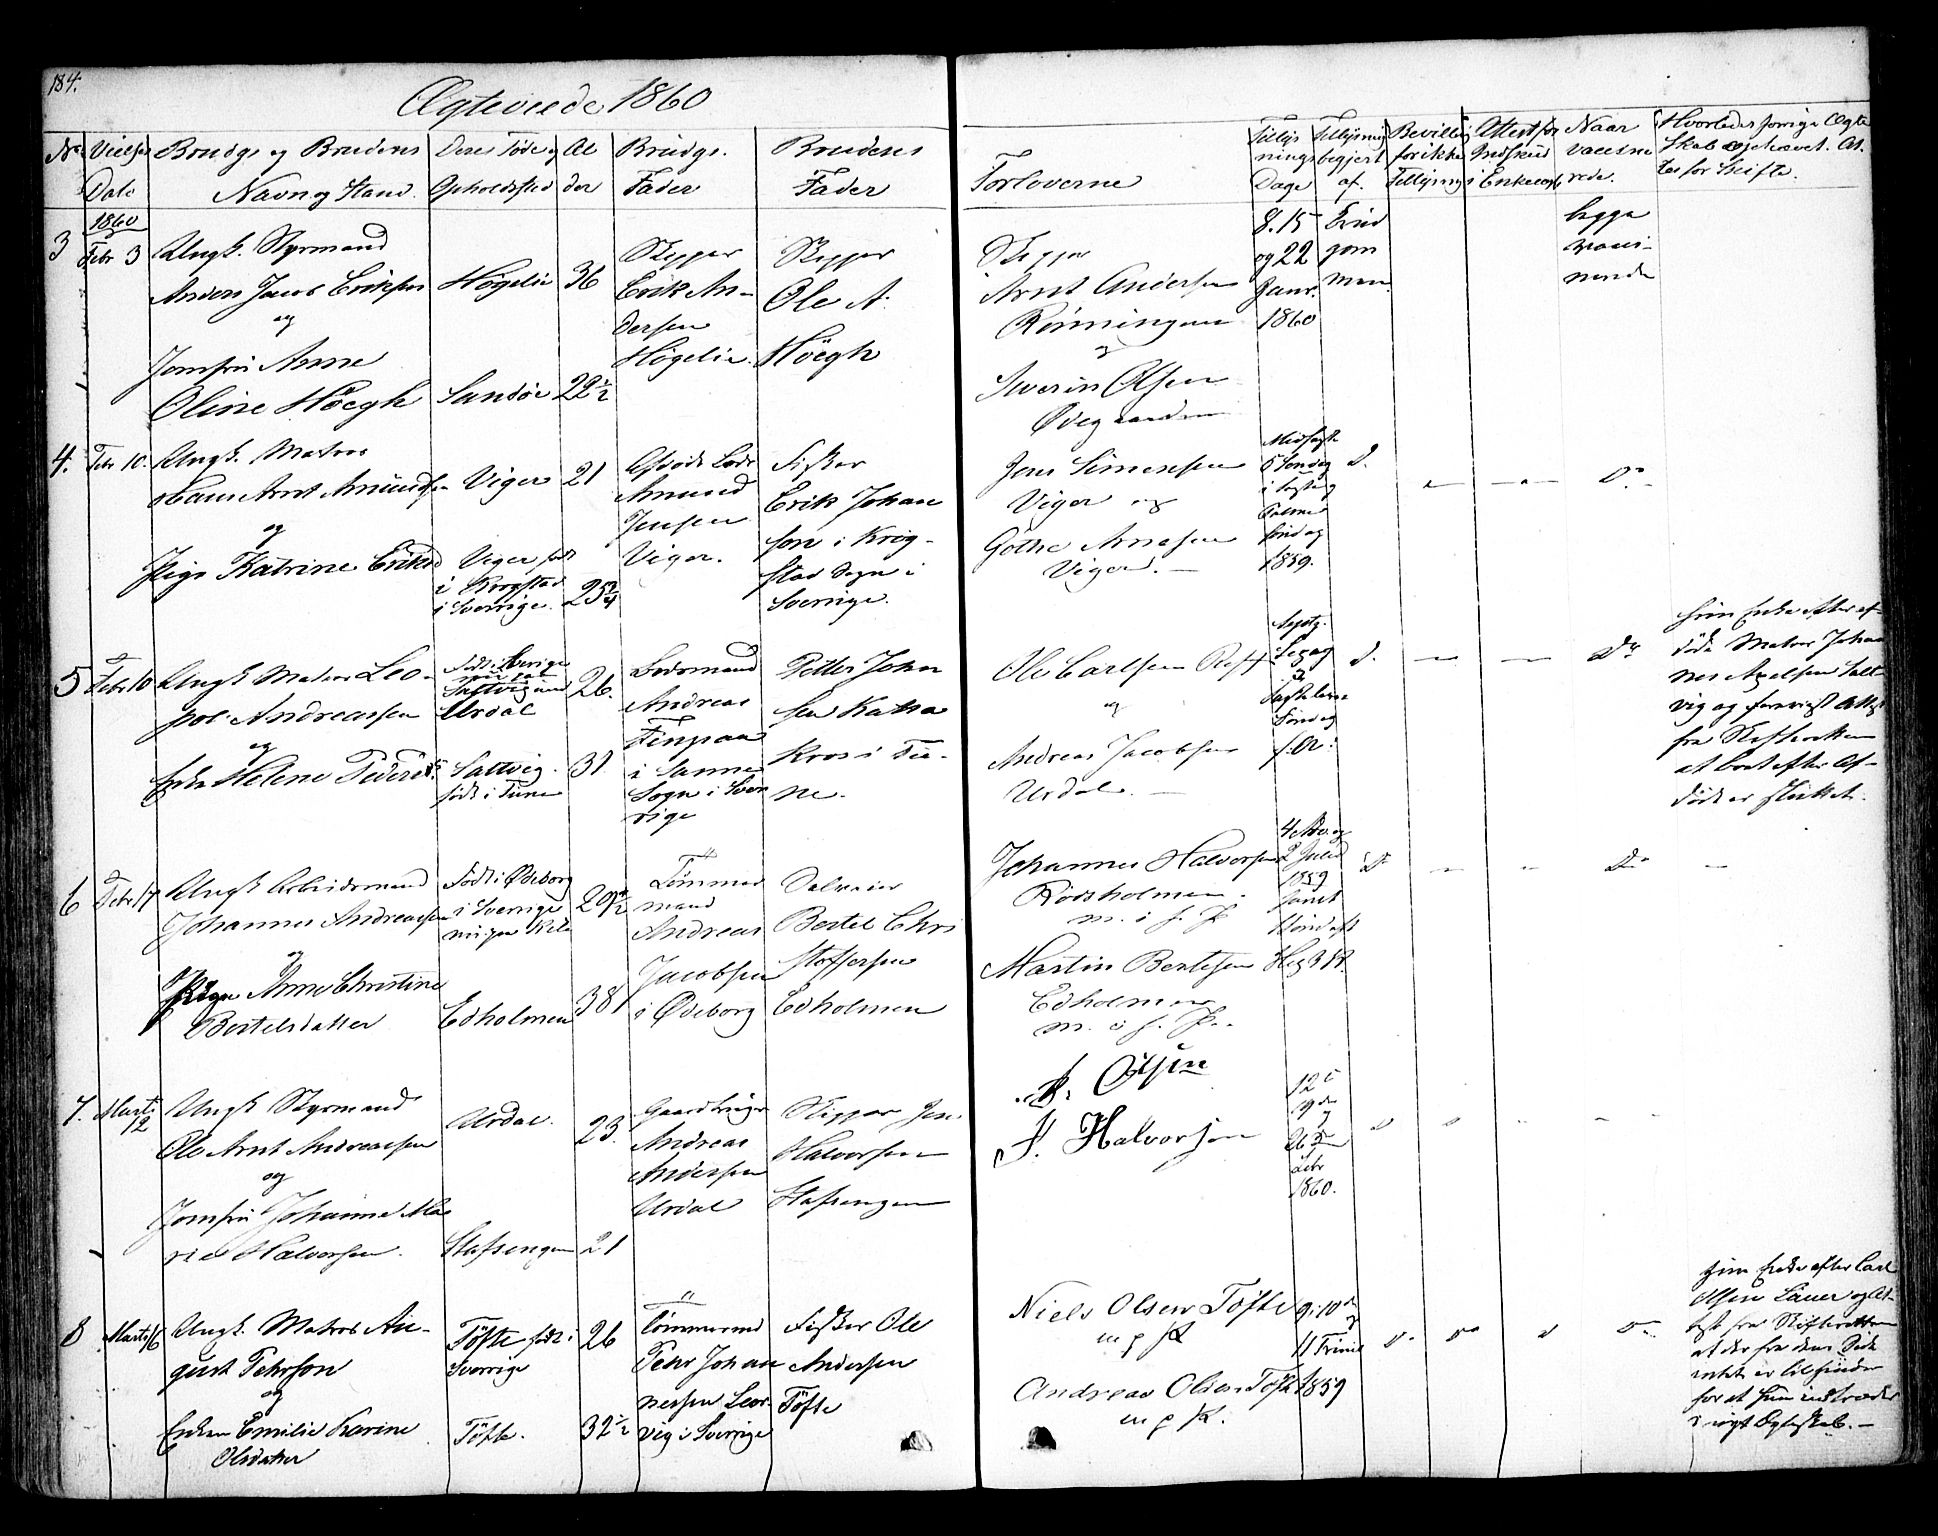 184.
Ægteviede 1860
No
Vielses
Dato
Brudgs og Brudenes
Navn og Stand
Deres Føde og
Opholdssted
Al
der
Brudgs.
Fader
Brudens
Fader
Forloverne
Tillys
nings
Dage
Tillysning
begjert
af.
Bevilling
for ikke
Tillysning
Attest for
Indskud
i Enkecas
Naar
vaccine
rede.
Hvorledes forrige Ægte
skab ophævet. At.
test for Skifte.
1860
3
Febr 3
Ungk. Styrmand
Anders Jacob Eriksen
og
Jomfru Anne
Oline Höegh
Høgelie
Sandøe
36
22½
Skipper
Erik An-
dersen
Høgelie
Skipper
Ole A.
Höegh
Skipper
Arnt Andersen
Rønningen
og
Severin Olsen
Ødegaarden
8. 15
og 22
Janr.
1860
Brud
gom
men
begge
4.
Febr 10.
Ungk. Matros
Hans Arnt Amunds
og
Pige Katrine Eriksd
Viger
Viger født
i Krogstad
i Sverrige.
21
25¾
Amund
Jensen
Viger.
Fisker
Erik Johan
son i Krog-
stad Sogn i
Sverrige.
Jens Simensen
Viger og
Gothe Arnesen
Viger.
5 Søndag
i Faste og
Palme
søndag
1859.
D.
Do
5
Febr 10
Ungk Matros Leo-
pol Andreassen
og
Enke Helene Peders
Saltvig und
Urdal
Saltvig.
født i Tune
26.
31.
Lodsmand
Andreas
i Sanne
Sogn i Sver
rige
Petter John
sen Katta
Kros i Tu-
ne.
Ole Carlsen Røff
og
Andreas Jacobsen
Urdal.
Søndag
f. A.
D.
Do
Hun Enke efter af-
døde Matros Johan
nes Axelsen Salt-
vig og foreviist Attest
fra Skifteretten
at boet efter Af-
døde er sluttet.
6
Febr 17
Ungk Arbeidsmand
Johannes Andreassen
og
Pigen Anne Christine
Bertelsdatter
Født i Ødeborg
i Sverrige
Edholmen
29½
38
Tømmer
mand
Andreas
Jacobsen
i Ødeborg
Bertel Chri
stoffersen
Edholmen
Johannes Halvorsen
Rødsholmen.
m. i f. P.
Martin Bertesen
Edholmen
m. i f. P.
2 Juled
1859
samt
Do
Do
7.
Marts
2
Ungk Styrmand
Ole Arnt Andreassen
og
Jomfru Johanne Ma
rie Halvorsen.
Urdal.
Stafsengen
23.
21
Gaardbruger
Andreas
Andersen
Urdal
Skipper Jens
Halvorsen
Stafsengen
B. Olsen
J. Halvorsen
12te
19de
26de
Febr
1860.
8
Marts 16
Ungk. Matros Au-
gust Pehrson
og
Enken Emilie Karine
Olsdatter
Töfte født i
Sverrige
Töfte.
26
32½
Tömmermd
Pehr Johan
nessen Leor
vig i Sverrige
Fisker Ole
Andersen
Töfte
Niels Olsen Töfte
m p P
Andreas Olsen Töfte
m p P.
9. 10de
11 Trinit
1859
Do
Hun Enke efter Carl
Olsen Lauer og At-
test fra Skifteretten
at der fra dens Side
intet er til hinder
for at hun indtræder
i nyt Ægteskab.